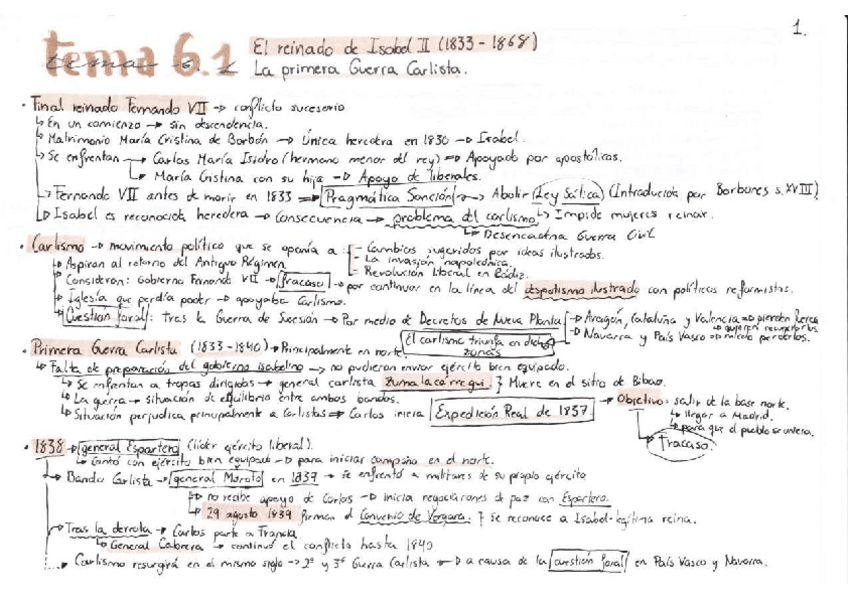 1.
tema 6.1
El reinado de Isabel II (1833-1868)
La primera Guerra Carlista.
· Final reinado Fernando VII → conflicto sucesorio
↳ En un comienzo → sin descendencia.
↳ Matrimonio María Cristina de Borbón → Única heredera en 1830 → Isabel.
↳ Se enfrentan → Carlos María Isidro (hermano menor del rey) ⇒ Apoyado por apostólicos.
↳ María Cristina con su hija → Apoyo de liberales.
↳ Fernando VII antes de morir en 1833 ⇒ Pragmática Sanción → Abolir (Ley Sálica) (Introducida por Borbones s.XVIII)
↳ Isabel es reconocida heredera → Consecuencia → problema del carlismo ↳ Impide mujeres reinar.
↳ Desencadena Guerra Civil
· Carlismo → movimiento político que se oponía a: - Cambios sugeridos por ideas ilustradas.
- La invasión napoleónica.
- Revolución liberal en Cádiz.
↳ Aspiran al retorno del Antiguo Régimen
↳ Consideran: Gobierno Fernando VII → fracaso → por continuar en la línea del despotismo ilustrado con políticas reformistas.
↳ Iglesia que perdía poder → apoyaba Carlismo.
↳ Cuestión foral: tras la Guerra de Sucesión → Por medio de Decretos de Nueva Planta - Aragón, Cataluña y Valencia ⇒ pierden fueros
→ quieren recuperarlos.
- Navarra y País Vasco ⇒ miedo perderlos.
El carlismo triunfa en dichas zonas
· Primera Guerra Carlista (1833-1840) → Principalmente en norte
↳ Falta de preparación del gobierno isabelino → no pudieron enviar ejército bien equipado.
↳ Se enfrentan a tropas dirigidas → general carlista Zumalacárregui. } Muere en el sitio de Bilbao.
↳ La guerra → situación de equilibrio entre ambos bandos.
↳ Situación perjudica principalmente a Carlistas ⇒ Carlos inicia Expedición Real de 1837 → Objetivo: salir de la base norte.
↳ llegar a Madrid.
↳ para que el pueblo se uniera.
Fracaso.
· 1838 → general Espartero (líder ejército liberal).
↳ Contó con ejército bien equipado → para iniciar campaña en el norte.
↳ Bando Carlista → general Maroto en 1837 → se enfrentó a militares de su propio ejército
↳ no recibe apoyo de Carlos → inicia negociaciones de paz con Espartero.
↳ 29 agosto 1839 firman el Convenio de Vergara. } se reconoce a Isabel-legítima reina.
→ Tras la derrota → Carlos parte a Francia
↳ General Cabrera → continuó el conflicto hasta 1840
→ Carlismo resurgirá en el mismo siglo → 2ª y 3ª Guerra Carlista → a causa de la cuestión foral en País Vasco y Navarra.